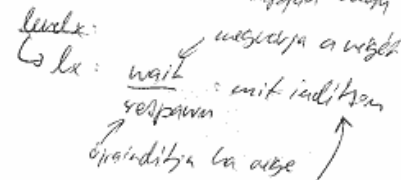 levelx:
↳ lx: wait megvárja a végét
respawn : mit indítson
újraindítja ha vége